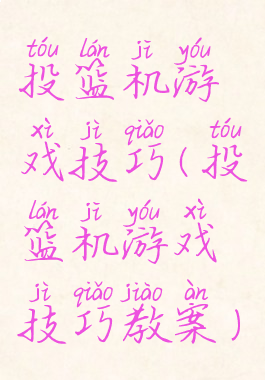 tóu lán jī yóu
投篮机游
xì jì qiǎo tóu
戏技巧(投
lán jī yóu xì
篮机游戏
jì qiǎo jiào àn
技巧教案)